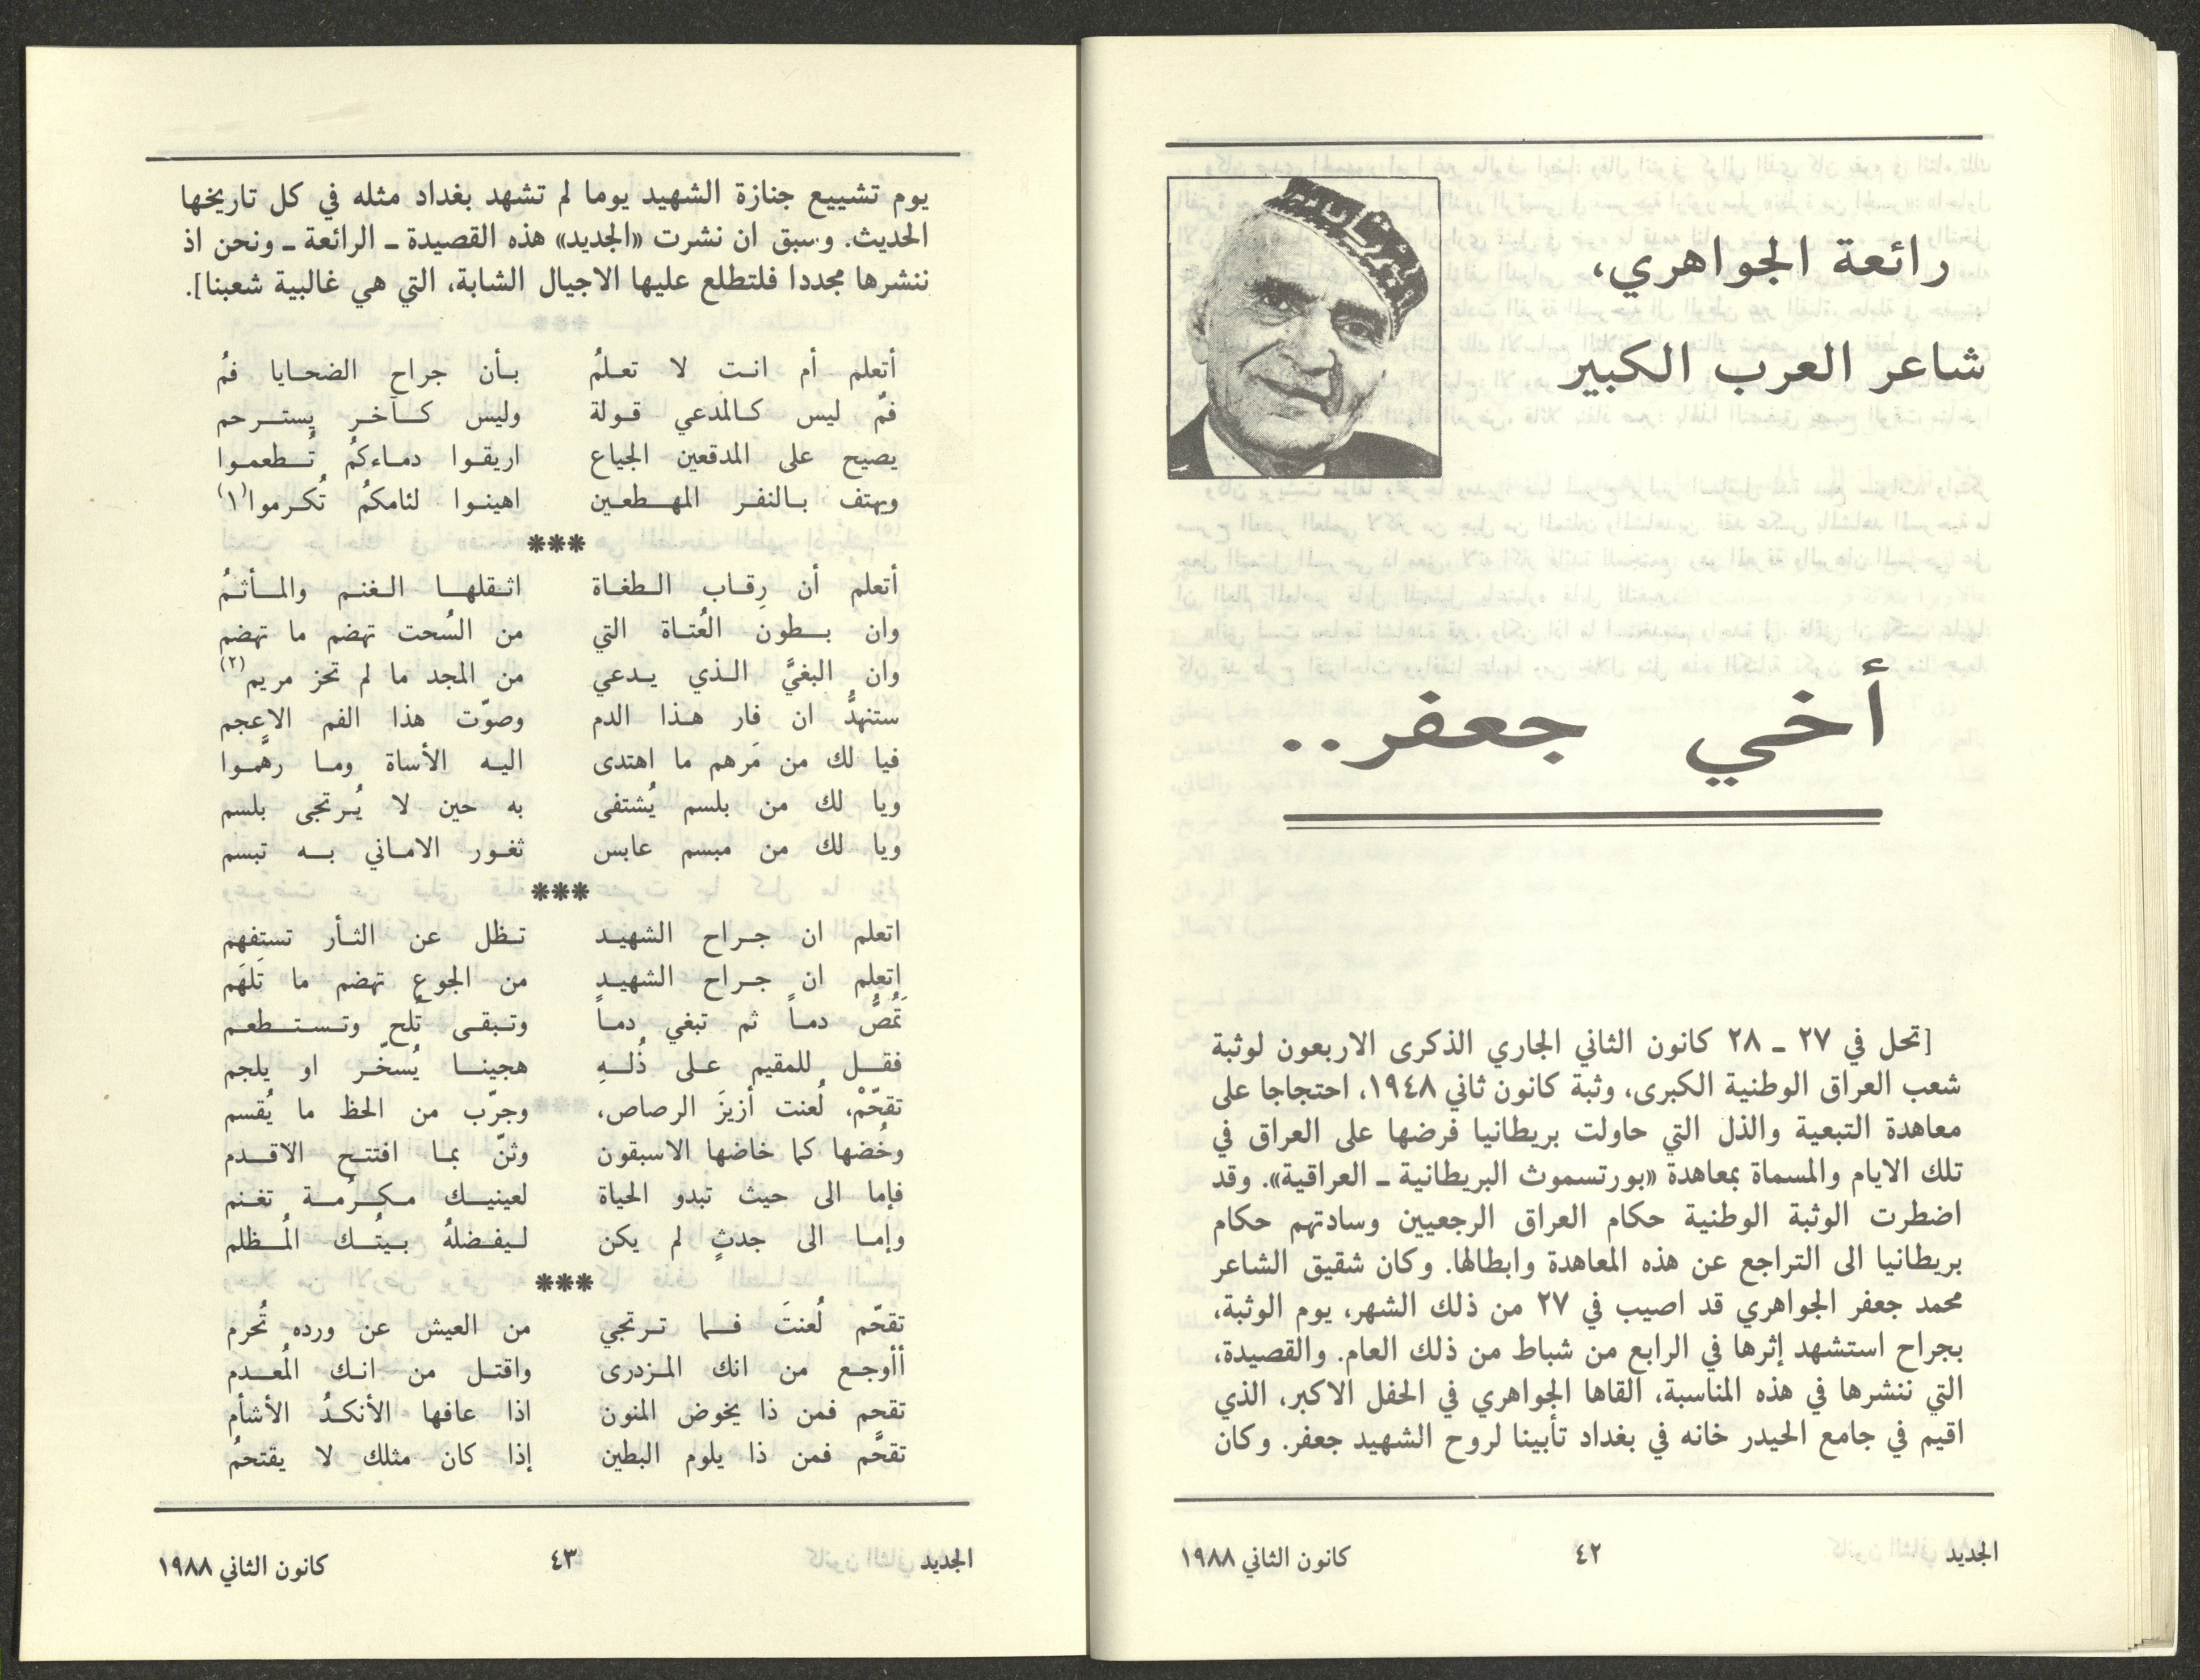 رائعة الجواهري،
شاعر العرب الكبير
أخي جعفر..
[تحل في ٢٧ ـ ٢٨ كانون الثاني الجاري الذكرى الاربعون لوثبة
شعب العراق الوطنية الكبرى، وثبة كانون ثاني ١٩٤٨، احتجاجا على
معاهدة التبعية والذل التي حاولت بريطانيا فرضها على العراق في
تلك الايام والمسماة بمعاهدة «بورتسموث البريطانية ـ العراقية». وقد
اضطرت الوثبة الوطنية حكام العراق الرجعيين وسادتهم حكام
بريطانيا الى التراجع عن هذه المعاهدة وابطالها. وكان شقيق الشاعر
محمد جعفر الجواهري قد اصيب في ٢٧ من ذلك الشهر، يوم الوثبة،
بجراح استشهد إثرها في الرابع من شباط من ذلك العام. والقصيدة،
التي ننشرها في هذه المناسبة، القاها الجواهري في الحفل الاكبر، الذي
اقيم في جامع الحيدر خانه في بغداد تأبينا لروح الشهيد جعفر. وكان
الجديد ٤٢ كانون الثاني ١٩٨٨
يوم تشييع جنازة الشهيد يوما لم تشهد بغداد مثله في كل تاريخها
الحديث. وسبق ان نشرت «الجديد» هذه القصيدة ـ الرائعة ـ ونحن اذ
ننشرها مجددا فلتطلع عليها الاجيال الشابة، التي هي غالبية شعبنا].
أتعلم أم انت لا تعلمُ بأن جراح الضحايا فمُ
فمٌ ليس كالمدعي قولة وليس كآخر يسترحم
يصيح على المدقعين الجياع اريقوا دماءكمُ تُطعموا
ويهتف بالنفر المهطعين اهينوا لئامكمُ تُكرموا(١)
***
أتعلم أن رِقاب الطغاة اثقلها الغنم والمأثمُ
وان بطون العُتاة التي من السُحت تهضم ما تهضم
وان البغيَّ الذي يدعي من المجد ما لم تحز مريم(٢)
ستنهدُّ ان فار هذا الدم وصوّت هذا الفم الاعجم
فيا لك من مَرهم ما اهتدى اليه الأساة وما رهَّموا
ويا لك من بلسم يُشتفى به حين لا يُرتجى بلسم
ويا لك من مبسم عابس ثغور الاماني به تبسم
***
اتعلم ان جراح الشهيد تظل عن الثأر تستفهم
اتعلم ان جراح الشهيد من الجوع تهضم ما تَلهَم
تَمُصُّ دماً ثم تبغي دماً وتبقى تُلح وتستطعم
فقل للمقيم على ذُلهِ هجينا يُسخّر او يلجم
تقحّمْ، لُعنت أزيزَ الرصاص، وجرّب من الحظ ما يُقسم
وخُضها كما خاضها الاسبقون وثنّ بما افتتح الاقدم
فإما الى حيث تبدو الحياة لعينيك مكرُمة تغنم
وإما الى جدثٍ لم يكن ليفضلهُ بيتُك المُظلم
***
تقحّم لُعنتَ فما ترتجي من العيش عن ورده تُحرم
أأوجع من انك المزدرى واقتل من انك المُعدم
تقحم فمن ذا يخوض المنون اذا عافها الأنكدُ الأشأم
تقحَّم فمن ذا يلوم البطين إذا كان مثلك لا يقتحمُ
الجديد ٤٣ كانون الثاني ١٩٨٨